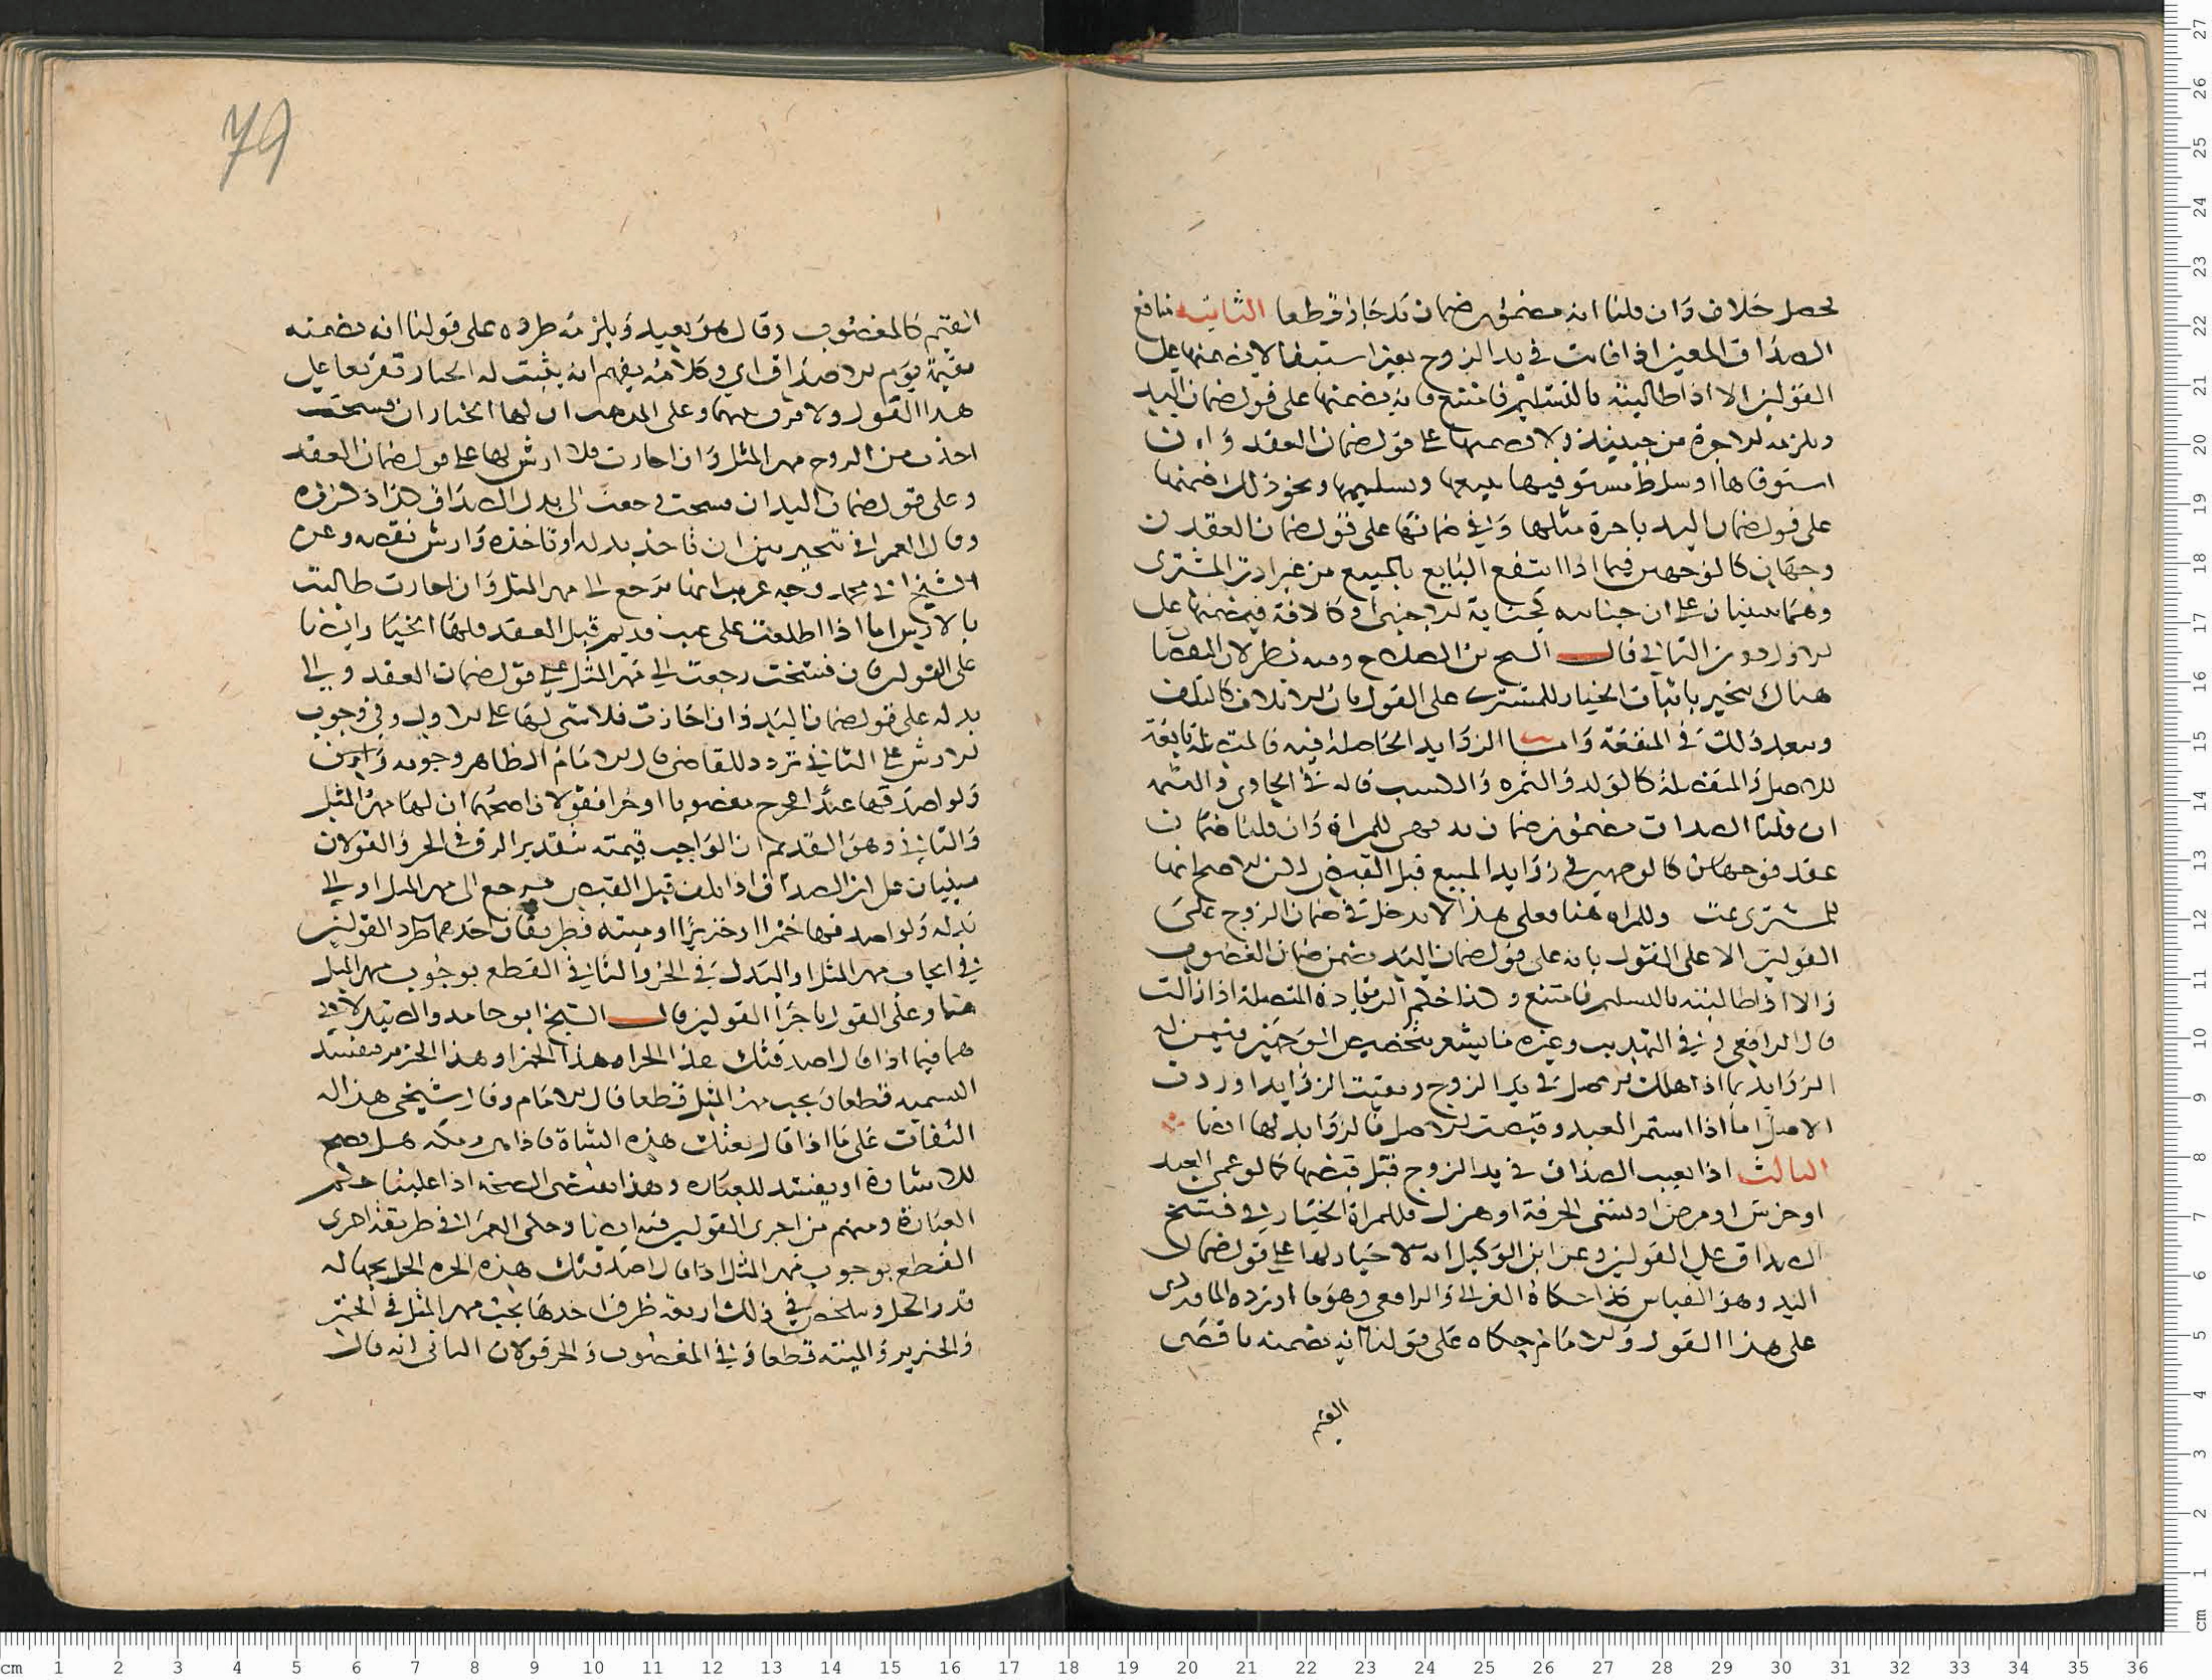 يحصل خلاف وان قلنا انه مضمون ضمان يد جاز قطعا الثانية منافع
الصداق المعين اذا فاتت في يد الزوج بغير استيفا لا يضمنها على
القولين الا اذا طالبته بالتسليم فامتنع فانه يضمنها على قول ضمان اليد
ويلزمه الاجرة من حينئذ ولا يضمنها على قول ضمان العقد وان
استوفاها او سلط مستوفيها ببيعها وتسليمها ونحو ذلك ضمنها
على قول ضمان اليد باجرة مثلها وفي ضمانها على قول ضمان العقد
وجهان كالوجهين فيما اذا انتفع البايع بالمبيع من غير اذن المشتري
وهما مبنيان على ان جنايته كجناية الاجنبي او كالافة فيضمنها على
الاول دون الثاني قال الشيخ بن الصلاح وفيه نظر لان المفضا
هناك يتخير باثبات الخيار للمشتري على القول بان الاتلاف كالتلف
وببعد ذلك في المنفعة واما الزوايد الحاصلة فيه فالمتصلة تابعة
للاصل والمنفصلة كالولد والثمرة والكسب قال في الحاوي والتتمه
ان قلنا الصداق مضمون ضمان يد فهي للمراة وان قلنا ضمان
عقد فوجهان كالوجهين في زوايد المبيع قبل القبض لكن الاصح انها
للمشتري ثمت وللمراه هنا فعلى هذا لا يدخل في ضمان الزوج على
القولين الا على القول بانه على قول ضمان اليد يضمن ضمان الغصوب
والا اذا طالبته بالتسليم فامتنع وكذا حكم الزيادة المتصلة اذا زالت
قال الرافعي وفي التهذيب وغيره ما يشعر بتخصيص الوجهين فيمن له
الزوايد بما اذا هلك الاصل في يد الزوج وبقيت الزوايد او ردت
الاصل اما اذا استمر العبد وقبضت الاصل فالزوايد لها ايضا
الثالث اذا تعيب الصداق في يد الزوج قبل قبضها كما لو عمي العبد
او خرس او مرض او نسي الحرفة او هزل فللمراة الخيار في فسخ
الصداق على القولين وعن ابن الوكيل انه لا خيار لها على قول ضمان
اليد وهو القياس كذا حكاه الغزالي والرافعي وهو ما اورده الماوردي
على هذا القول والامام حكاه على قولنا انه يضمنه باقصى
القيم
79
القيم كالمغصوب وقال هو بعيد ويلزمه طرده على قولنا انه يضمنه
بقيمة يوم الاصداق اي وكلامه يفهم انه يثبت له الخيار تفريعا على
هذا القول ولا فرق بينهما وعلى المذهب ان لها الخيار ان فسخت
اخذت من الزوج مهر المثل وان اجازت فلا ارش لها على قول ضمان العقد
وعلى قول ضمان اليد ان فسخت رجعت الى بدل الصداق كذا ذكروه
وقال العمراني تتخير بين ان تاخذ بدله او تاخذه وارش نقصه وعن
الشيخ ابي محمد وجه غريب انها ترجع الى مهر المثل وان اجازت طالبت
بالارش اما اذا اطلعت على عيب قديم قبل العقد فلها الخيار ايضا
على القولين فان فسخت رجعت الى مهر المثل على قول ضمان العقد والى
بدله على قول ضمان اليد وان اجازت فلا شي لها على الاول وفي وجوب
الارش على الثاني تردد للقاضي قال الامام الظاهر وجوبه
ولو اصدقها عبدا فخرج مغصوبا او حرا فقولان اصحهما ان لها مهر المثل
والثاني وهو القديم ان الواجب قيمته بتقدير الرق في الحر والقولان
مبنيان على ان الصداق اذا تلف قبل القبض يرجع الى مهر المثل او الى
بدله ولو اصدقها خمرا او خنزيرا او ميته فطريقان احدهما طرد القولين
في ايجاب مهر المثل او البدل في الحر والثاني القطع بوجوب مهر المثل
هنا وعلى القول باجرا القولين قال الشيخ ابو حامد والصيدلاني
هما فيما اذا قال اصدقتك هذا الحر او هذا الخمر او هذا الخنزير فيفسد
التسميه قطعا ويجب مهر المثل قطعا قال الامام وقال شيخي هذا له
التفات على ما اذا قال بعتك هذه الشاة فاذا هي رمكه هل يصح
للاشارة او يفسد للعبارة وهذا يقتضي الصحة اذا غلبنا حكم
العبارة ومنهم من اجرى القولين فيه ايضا وحكى العمراني طريقة اخرى
القطع بوجوب مهر المثل اذا قال اصدقتك هذه الجره الخل بجهاله
قدر الخل ويتلخص في ذلك اربعة طرق احدها يجب مهر المثل في الخمر
والخنزير والميته قطعا وفي المغصوب والحر قولان الثاني انه قال